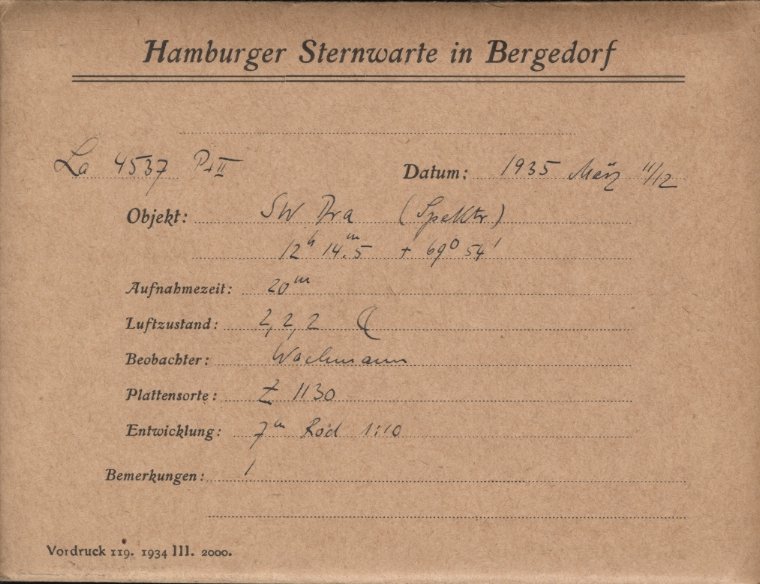 Hamburger Sternwarte in Bergedorf
La 4537 P+II Datum: 1935 März 11/12
Objekt: SW Dra (Spektr)
12ʰ 14ᵐ.5 + 69° 54'
Aufnahmezeit: 20ᵐ
Luftzustand: 2, 2, 2 ☾
Beobachter: Wachmann
Plattensorte: Z 1130
Entwicklung: 7ᵐ Rod 1:10
Bemerkungen: /
Vordruck 119. 1934 III. 2000.